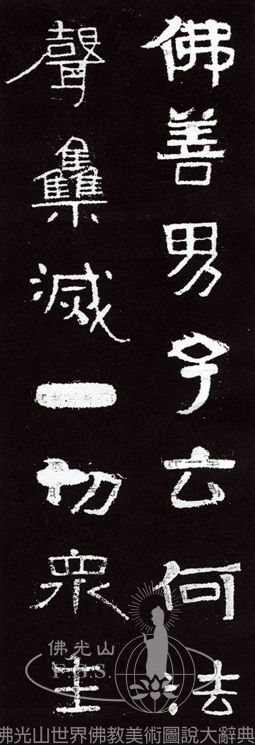 佛善男子云何法
聲雧滅一切衆生
佛光山
佛光山世界佛教美術圖說大辭典